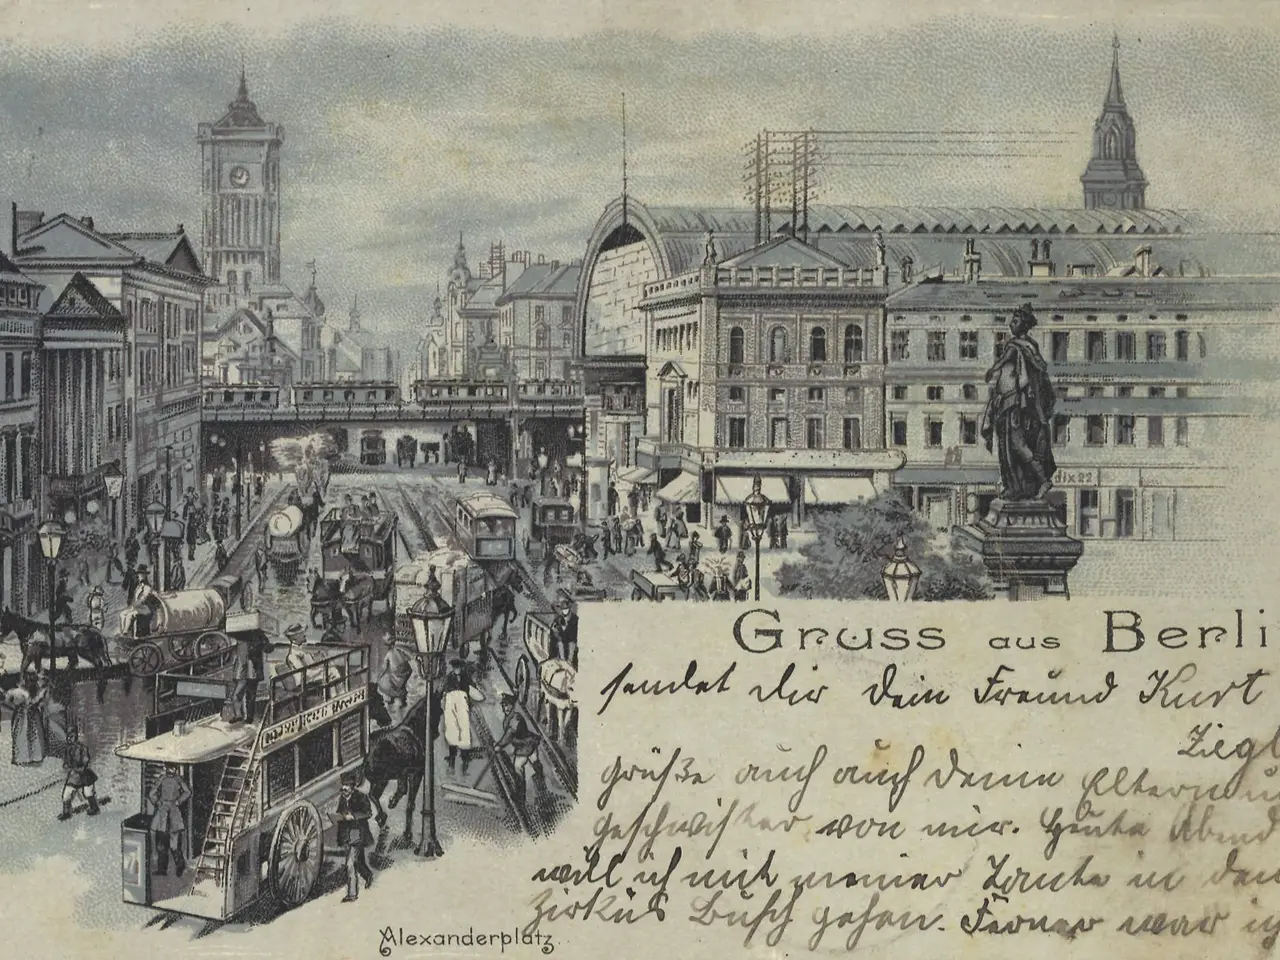 Gruss aus Berli
sendet dir dein Freund Kurt
Ziegl
grüße auch auch deine Eltern u
geschwister von mir. Heute Abend
will ich mit meiner Tante in den
Zirkus Busch gehen. Ferner war ich
Alexanderplatz